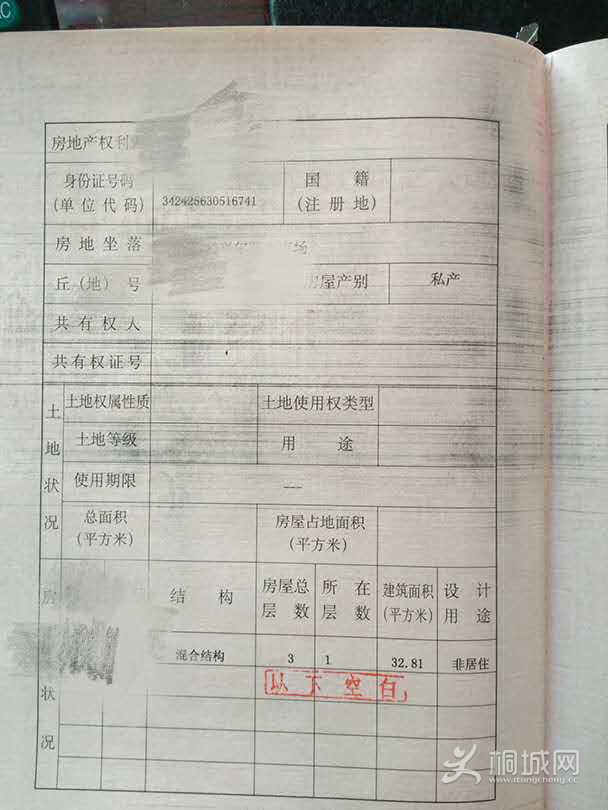 房地产权利
身份证号码 国籍
(单位代码) 342425630516741 (注册地)
房地坐落 场
丘(地)号 屋产别 私产
共有权人
共有权证号
土地状况
土地权属性质 土地使用权类型
土地等级 用途
使用期限 —
总面积 房屋占地面积
(平方米) (平方米)
房 状况
结构 房屋总层数 所在层数 建筑面积(平方米) 设计用途
混合结构 3 1 32.81 非居住
以下空白
桐城网
www.itongcheng.cc